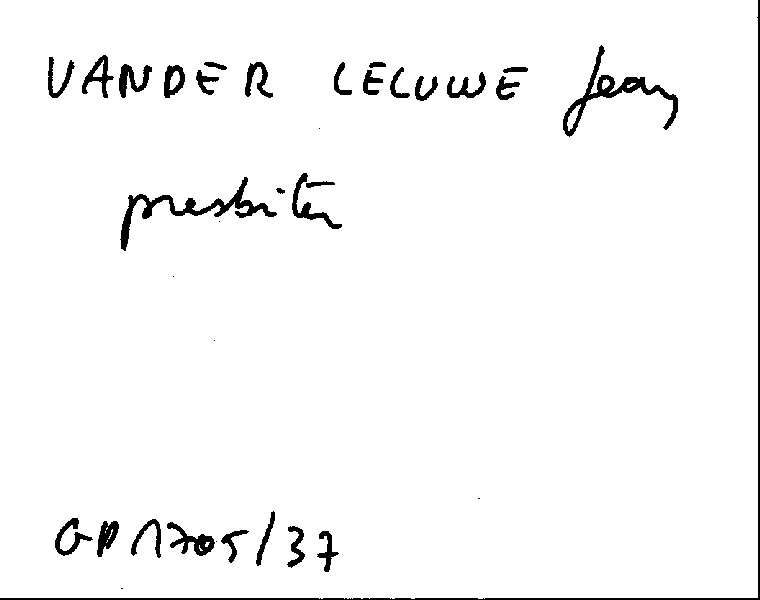 VANDER LELUWE Jean
presbiter
GP 1705/37